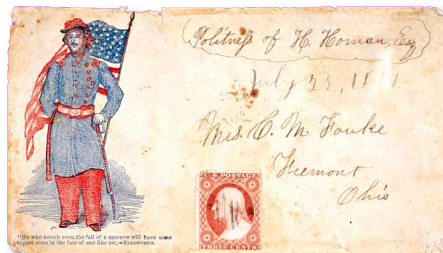 Politness of H. Homan, Esq
July 22, 1861
Mrs. C. M. Fouke
Fremont
Ohio
U.S. POSTAGE
THREE CENTS
"He who noteth even the fall of a sparrow will have some
purpose even in the fate of one like me,—ELLSWORTH.